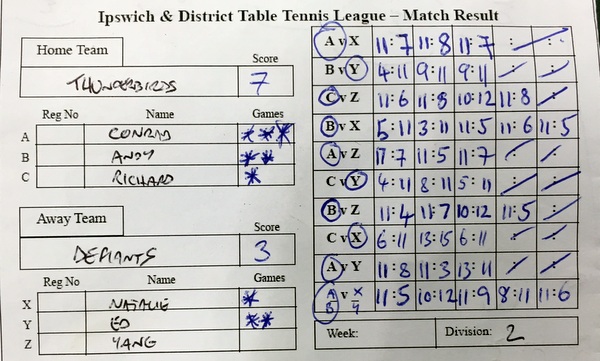 Ipswich & District Table Tennis League – Match Result
Home Team
Score
THUNDERBIRDS 7
Reg No Name Games
A CONRAD ***
B ANDY **
C RICHARD *
Away Team
Score
DEFIANTS 3
Reg No Name Games
X NATALIE *
Y ED **
Z YANG
A v X 11:7 11:8 11:7 : :
B v Y 4:11 9:11 9:11 : :
C v Z 11:6 11:8 10:12 11:8 :
B v X 5:11 3:11 11:5 11:6 11:5
A v Z 11:7 11:5 11:7 : :
C v Y 4:11 8:11 5:11 : :
B v Z 11:4 11:7 10:12 11:5 :
C v X 6:11 13:15 6:11 : :
A v Y 11:8 11:3 13:11 : :
A B v X Y 11:5 10:12 11:9 8:11 11:6
Week: Division: 2